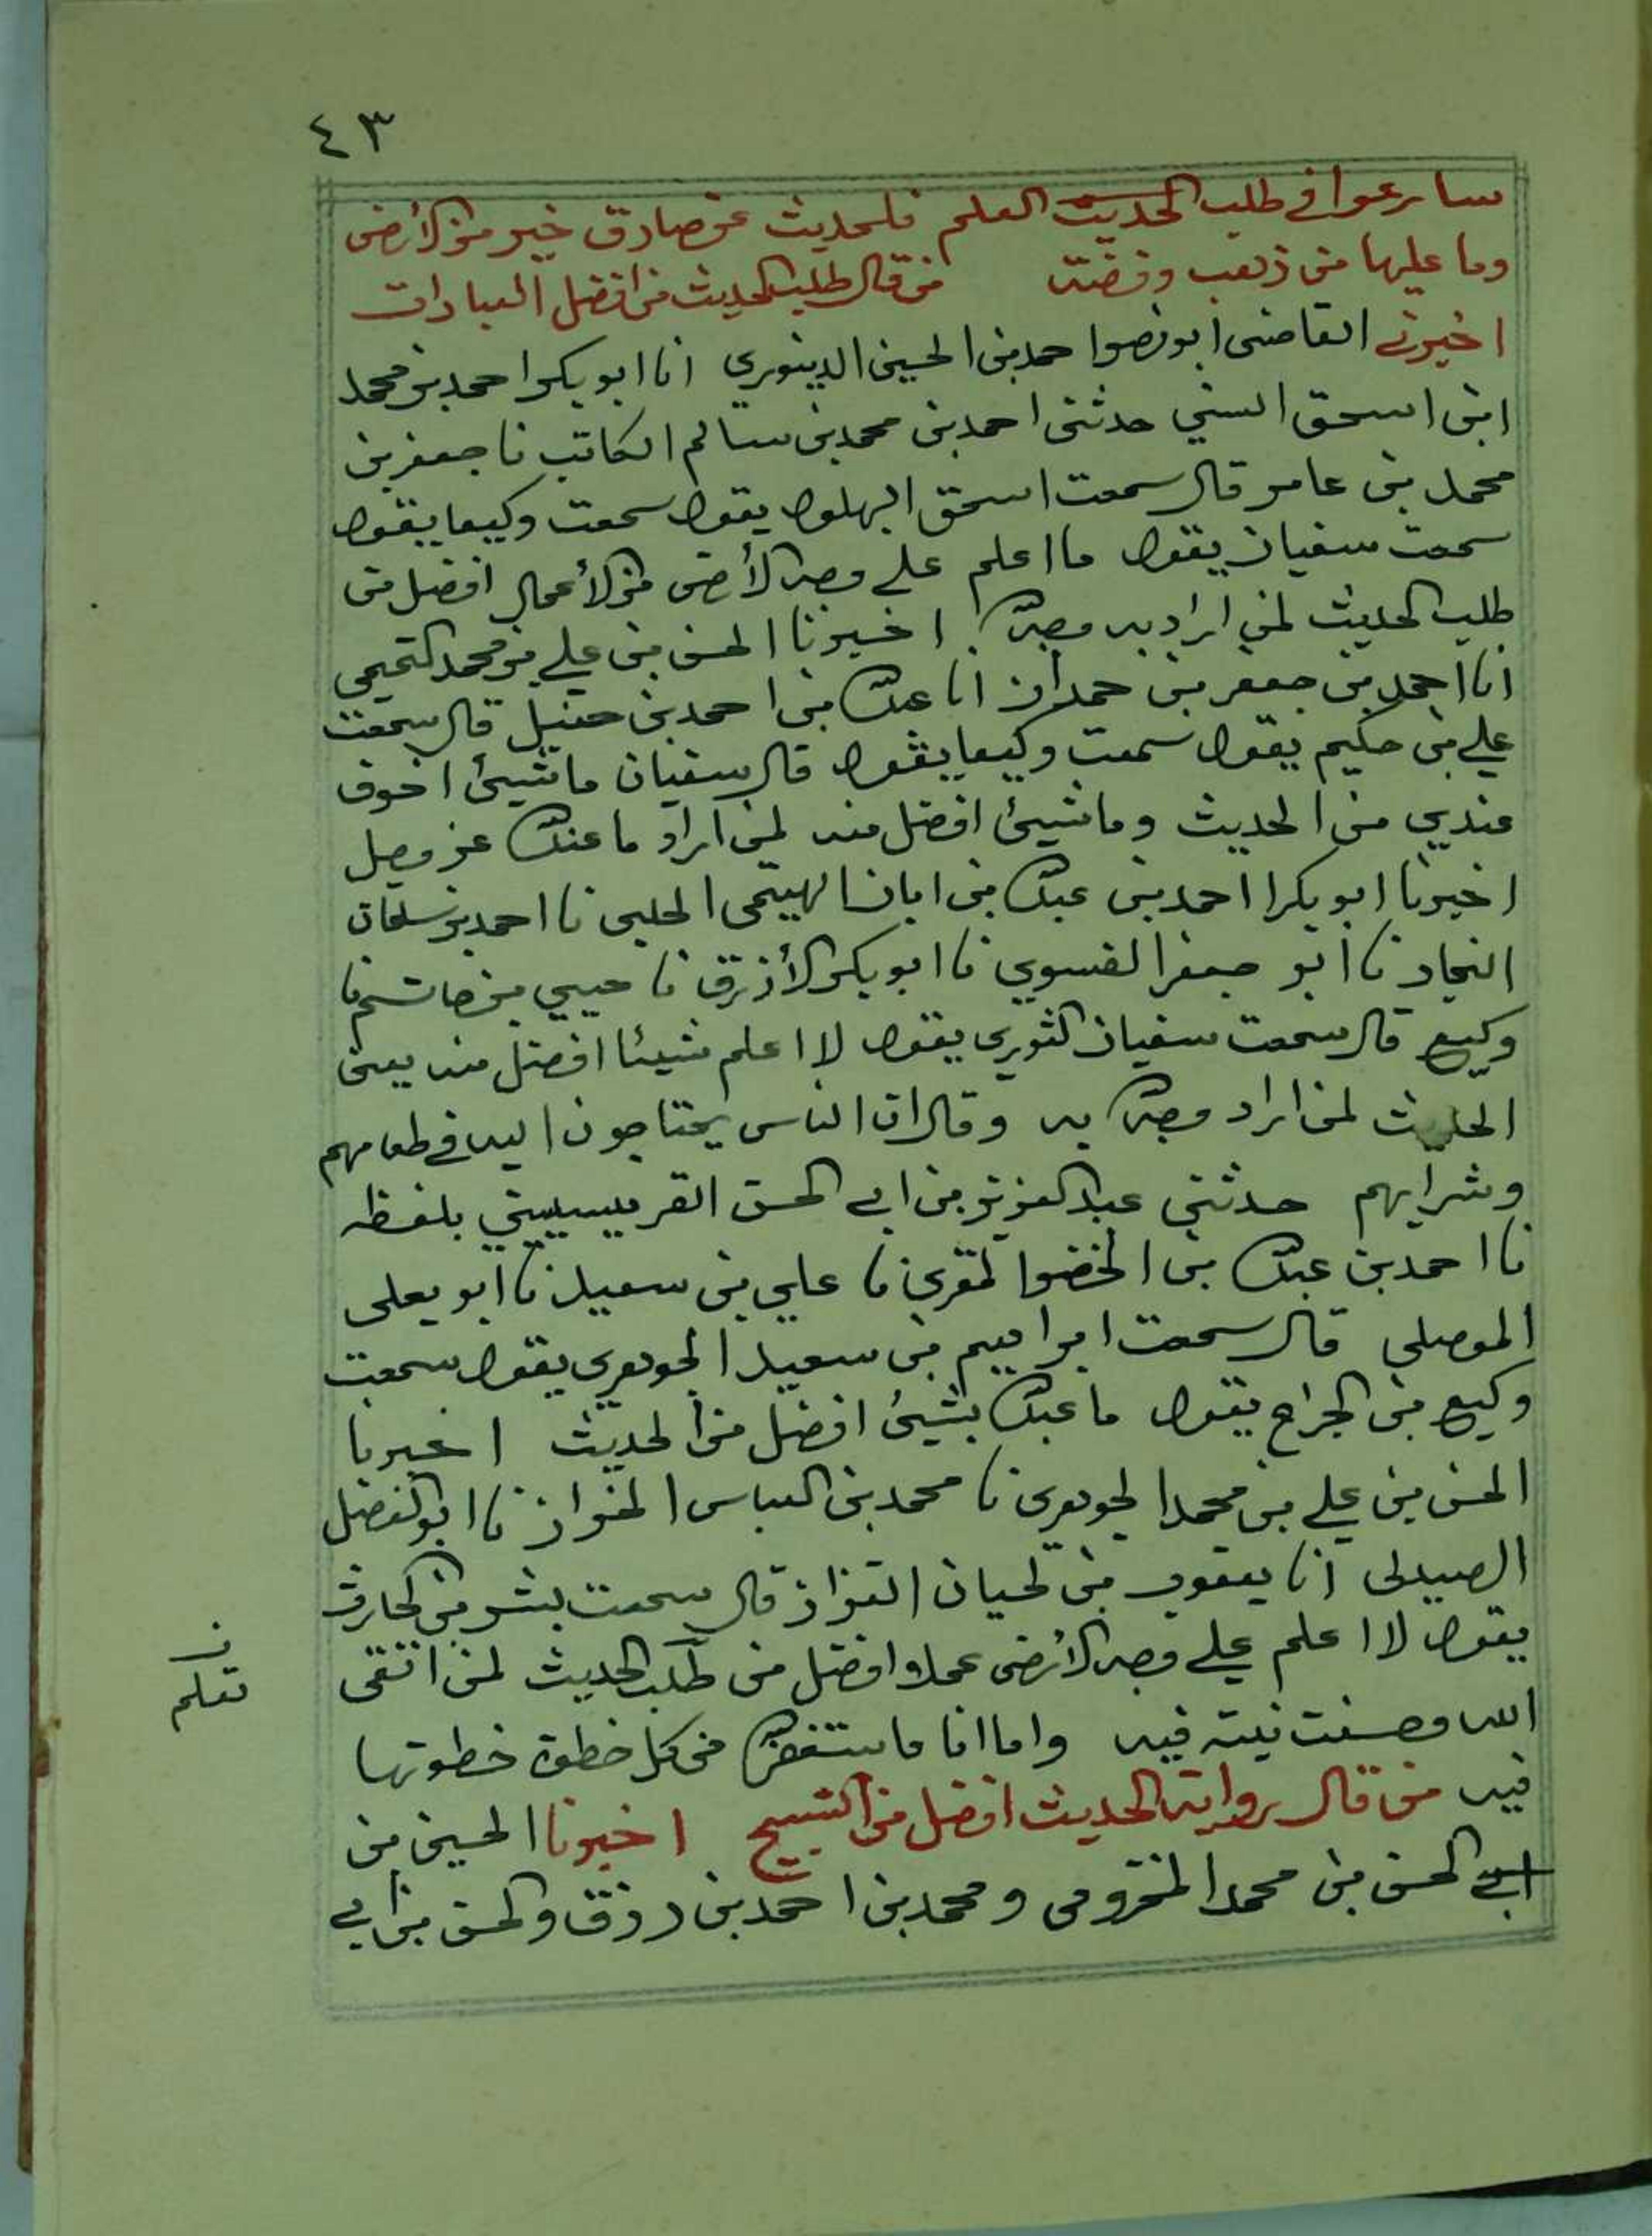 ٤٣
سارعوا في طلب الحديث العلم فلحديث عن صادق خير من الأرض
وما عليها من ذهب وفضة من قال طلب الحديث من افضل العبادات
اخبرني القاضي ابو نصر احمد بن الحسين الدينوري انا ابو بكر احمد بن محمد
ابن اسحق السني حدثني احمد بن محمد بن سالم الكاتب نا جعفر بن
محمد بن عامر قال سمعت اسحق البهلول يقول سمعت وكيعا يقول
سمعت سفيان يقول ما اعلم على وجه الأرض من الأعمال افضل من
طلب الحديث لمن اراد به وجه الله اخبرنا الحسن بن علي بن محمد التميمي
انا احمد بن جعفر بن حمدان انا عبد الله بن احمد بن حنبل قال سمعت
علي بن حكيم يقول سمعت وكيعا يقول قال سفيان ما شيئ اخوف
عندي من الحديث وما شيئ افضل منه لمن اراد ما عند الله عز وجل
اخبرنا ابو بكر احمد بن عبد الله بن ابان الهيتمي الحلبي نا احمد بن سلمان
النجاد نا ابو جعفر الفسوي نا ابو بكر الأزرق نا حبيبي بن حاتم نا
وكيع قال سمعت سفيان الثوري يقول لا اعلم شيئا افضل منه يعني
الحديث لمن اراد وجه الله به وقال ان الناس يحتاجون اليه في طعامهم
وشرابهم حدثني عبد العزيز بن ابي الحسن القرميسيني بلفظه
نا احمد بن عبد الله بن الخضر المقرئ نا علي بن سعيد نا ابو يعلى
الموصلي قال سمعت ابراهيم بن سعيد الجوهري يقول سمعت
وكيع بن الجراح يقول ما عبد الله بشيئ افضل من الحديث اخبرنا
الحسن بن علي بن محمد الجوهري نا محمد بن العباس الخزاز نا ابو الفضل
الصيدلي انا يعقوب بن لحيان القزاز قال سمعت بشر بن الحارث
يقول لا اعلم على وجه الأرض عملا افضل من طلب الحديث لمن اتقى
الله وحسنت نيته فيه واما انا فاستغفر الله من كل خطوة خطوتها
فيه من قال رواية الحديث افضل من التسبيح اخبرنا الحسين بن
ابي الحسن بن محمد المخزومي ومحمد بن احمد بن رزق والحسن بن ابي
ن
تعلم